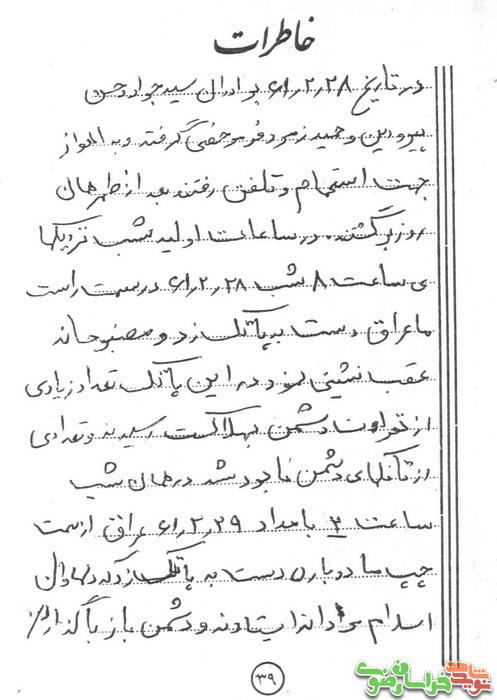 خاطرات
در تاریخ ۶۱٫۲٫۲۸ برادران سید جواد حسن
و حمید مرخصی گرفته و به اهواز
جهت استحمام و تلفن رفتند بعد از ظهر همان
روز برگشتند. در ساعات اولیه شب نزدیکها
ی ساعت ۸ شب ۶۱٫۲٫۲۸ در سمت راست
ما عراق دست به پاتک زد و مفتضحانه
عقب نشینی نمود در این پاتک تعداد زیادی
از نفرات دشمن بهلاکت رسیدند و تعدادی
از تانکهای دشمن نابود شد در همان شب
ساعت ۲ بامداد ۶۱٫۲٫۲۹ عراق از سمت
چپ ما دوباره دست به پاتک زد که دلاوران
اسلام مردانه ایستادند و دشمن با بجا گذاردن
۳۹
شاهد
نوید
خراسان رضوی